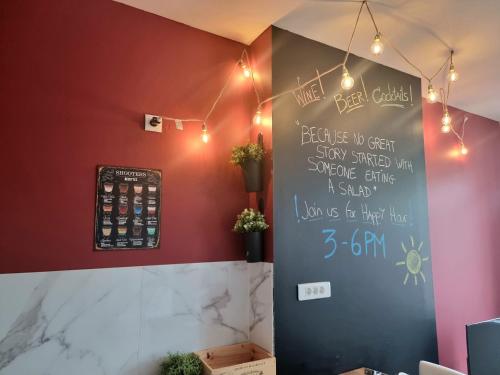 WINE! BEER! Cocktails!
"BECAUSE NO GREAT
STORY STARTED WITH
SOMEONE EATING
A SALAD"
! Join us for Happy Hour!
3-6PM
SHOOTERS